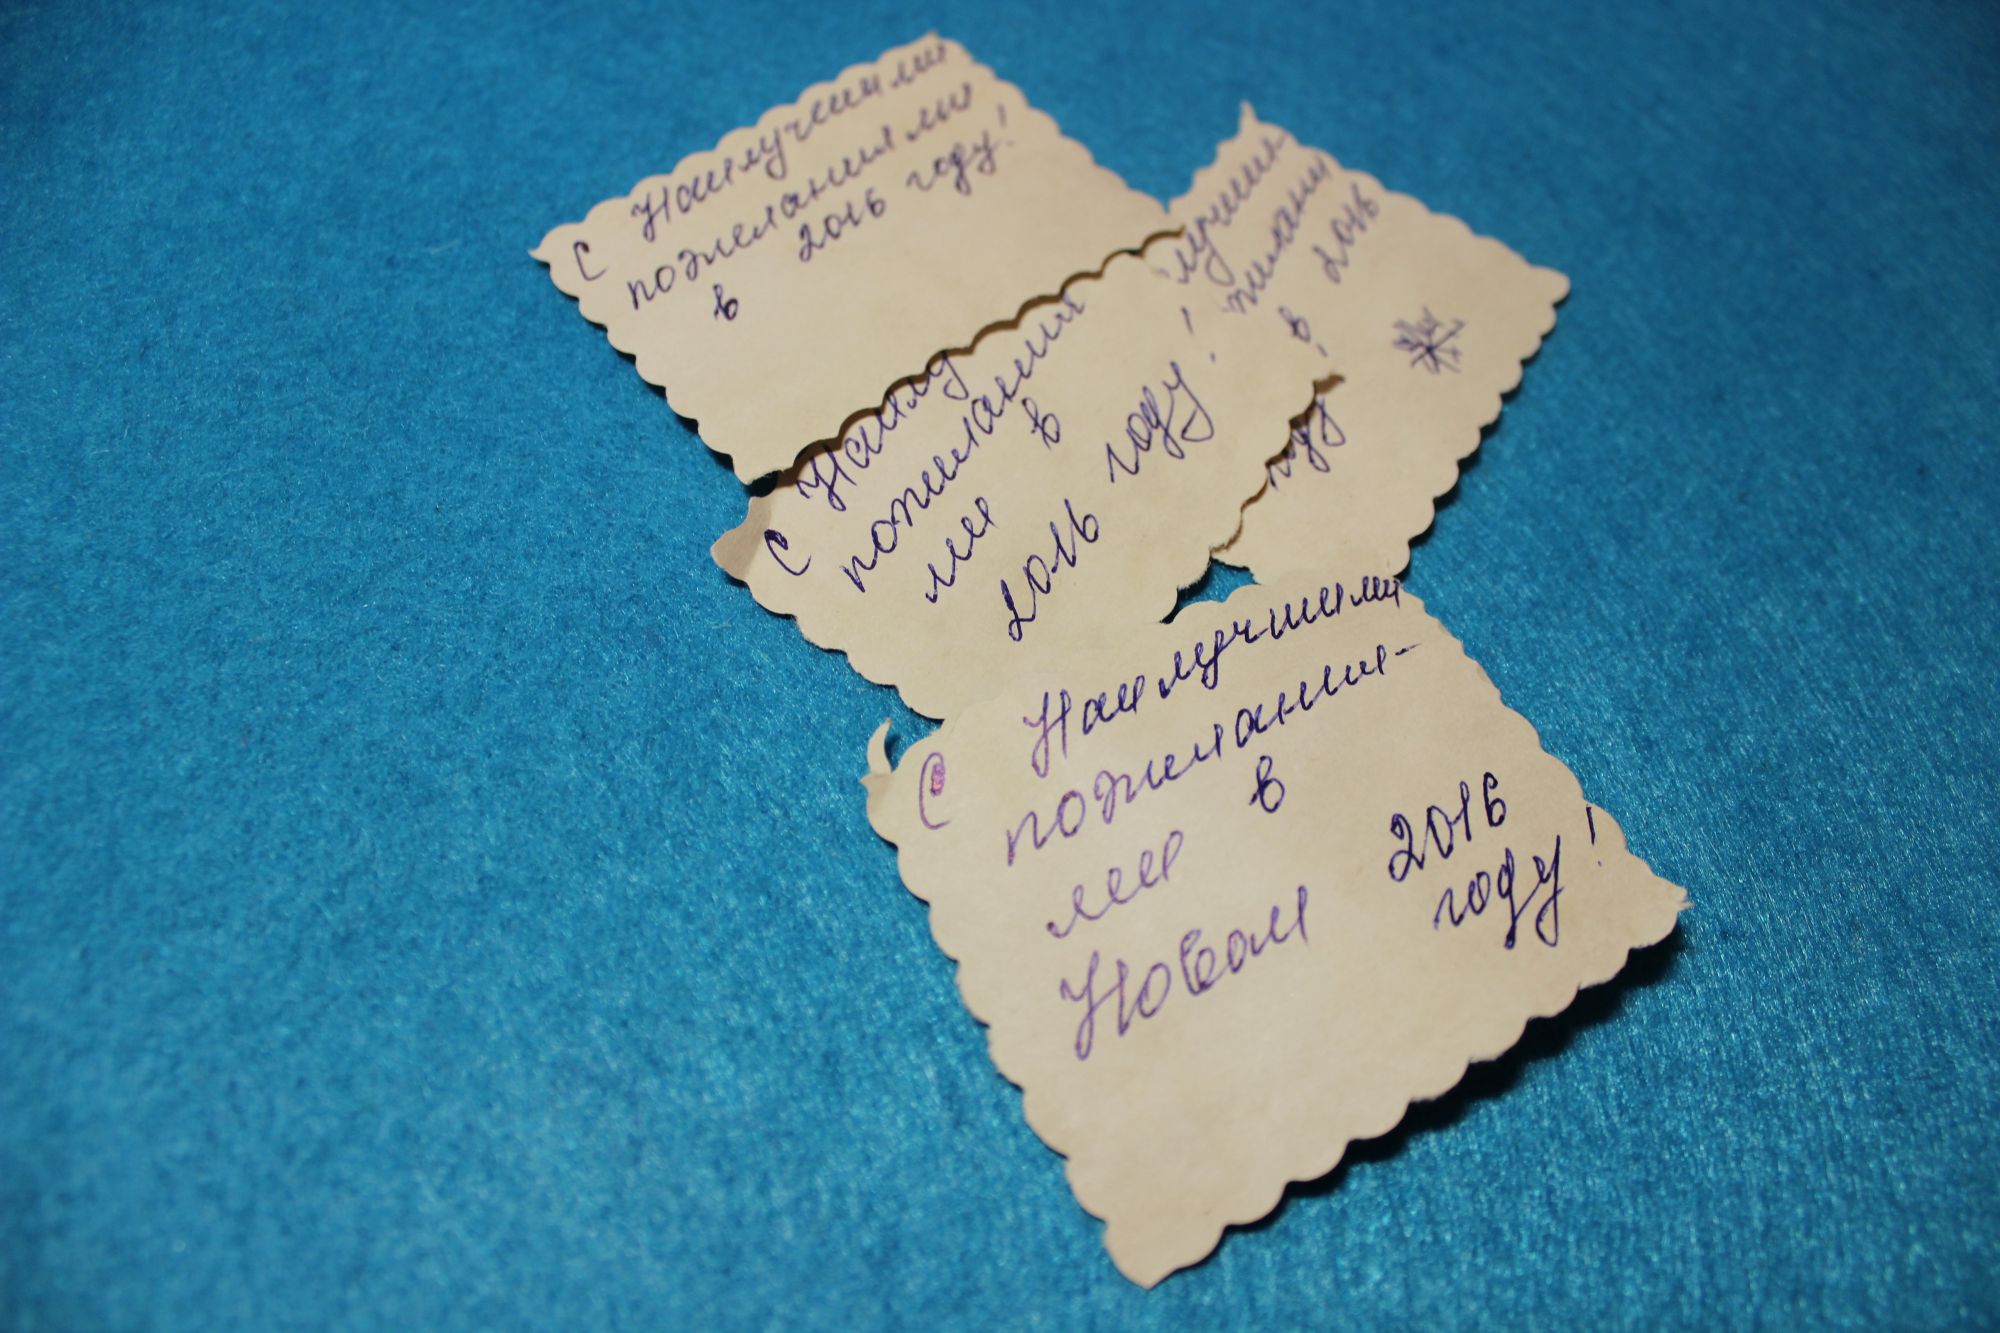 С Наилучшими
пожеланиями
в 2016 году!
лучшим
желани
в 2016
году!
С Наилу
пожелания
ми в
2016 году!
С Наилучшими
пожелания-
ми в
Новом 2016
году!